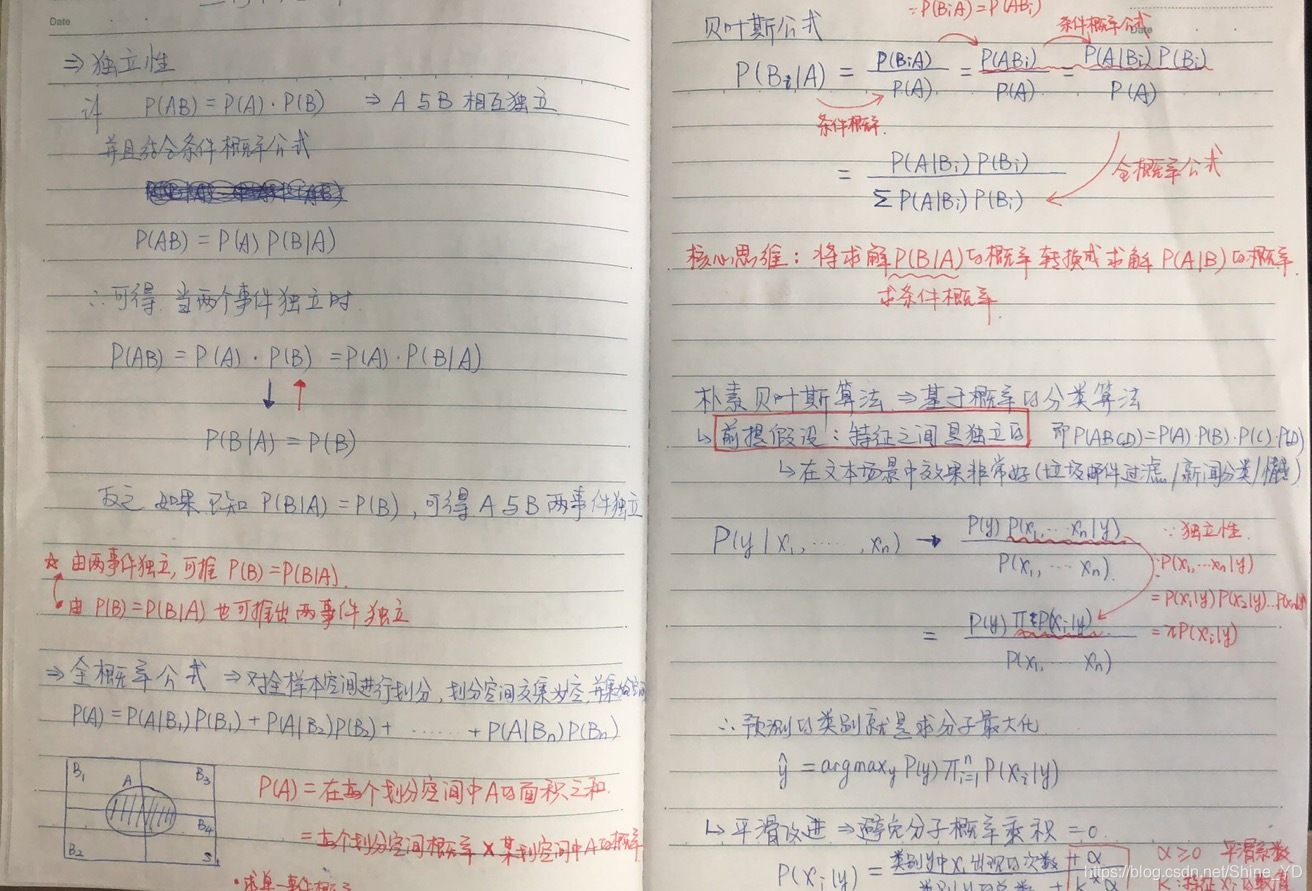 Date
⇒ 独立性
P(AB) = P(A)·P(B) ⇒ A与B相互独立
并且结合条件概率公式
P(AB) = P(A) P(B|A)
∴可得 当两个事件独立时
P(AB) = P(A)·P(B) = P(A)·P(B|A)
↓ ↑
P(B|A) = P(B)
反之 如果已知 P(B|A) = P(B), 可得 A与B 两事件独立
☆ 由两事件独立, 可推 P(B) = P(B|A).
由 P(B) = P(B|A) 也可推出两事件独立
⇒ 全概率公式 ⇒ 对全样本空间进行划分, 划分空间交集为空, 并集
P(A) = P(A|B₁)P(B₁) + P(A|B₂)P(B₂) + ······ + P(A|Bn)P(Bn)
B₁ A B₃
B₄
B₂ S
P(A) = 在每个划分空间中A的面积之和.
= 每个划分空间概率 × 某划空间中A的概率
·求单一事件概率
∵P(BiA) = P(ABi)
贝叶斯公式 条件概率公式
P(Bi|A) = P(BiA)/P(A) = P(ABi)/P(A) = P(A|Bi)P(Bi)/P(A)
条件概率.
= P(A|Bi)P(Bi)/ΣP(A|Bi)P(Bi) 全概率公式
核心思维: 将求解P(B|A)的概率 转换成 求解 P(A|B)的概率.
求条件概率.
朴素贝叶斯算法 ⇒ 基于概率的分类算法
↳ 前提假设: 特征之间是独立的 即P(ABCD)=P(A)·P(B)·P(C)·P(D)
↳ 在文本场景中效果非常好(垃圾邮件过滤/新闻分类/情感)
P(y|x₁, ······, xn) → P(y)P(x₁,···xn|y)/P(x₁,···xn) ∵独立性.
∴P(x₁,···xn|y)
= P(x₁|y)P(x₂|y)···P(xn|y)
= P(y)πP(xi|y)/P(x₁,···xn) = πP(xi|y)
∴ 预测的类别就是求分子最大化
ŷ = argmaxy P(y) πⁿᵢ₌₁ P(xi|y)
↳ 平滑改进 ⇒ 避免分子概率乘积 = 0.
P(xi|y) = 类别y中xi出现的次数 + α α≥0 平滑系数
https://blog.csdn.net/Shine_YD